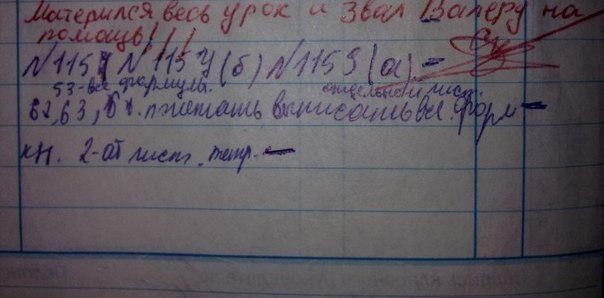 Матерился весь урок и звал Валеру на
помощь!!!
№1154 №1154(б) №1159(а)
53-все формулы. отдельной лист.
62,63, выписать все форм
кн. 2-ой лист. тетр.